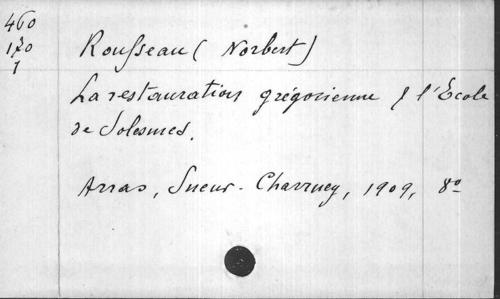 460
170
1
Rousseau (Norbert)
La restauration grégorienne & l'Ecole
de Solesmes.
Arras, Sueur-Charruey, 1909, 8º